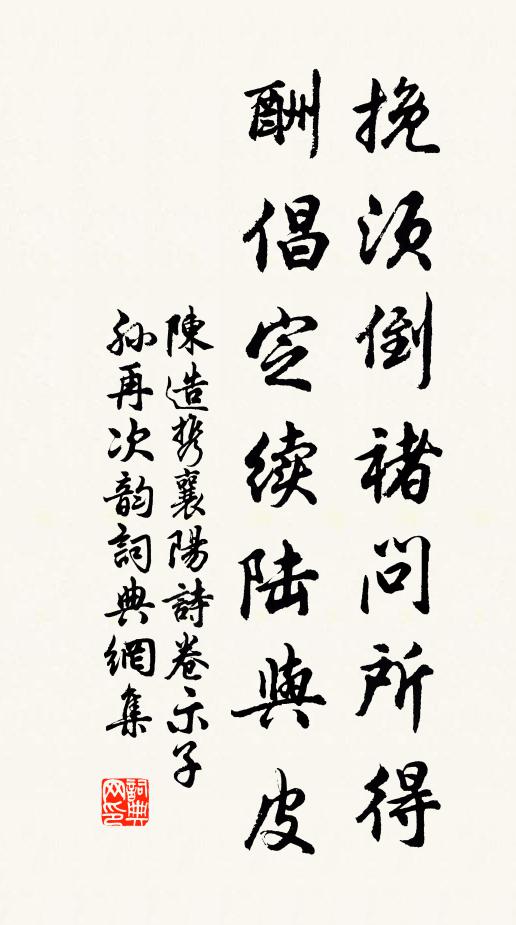 挽须倒褚问所得
酬倡定续陆與皮
陳造携襄陽詩卷示子
孙再次韵詞典網集
詞典
网印